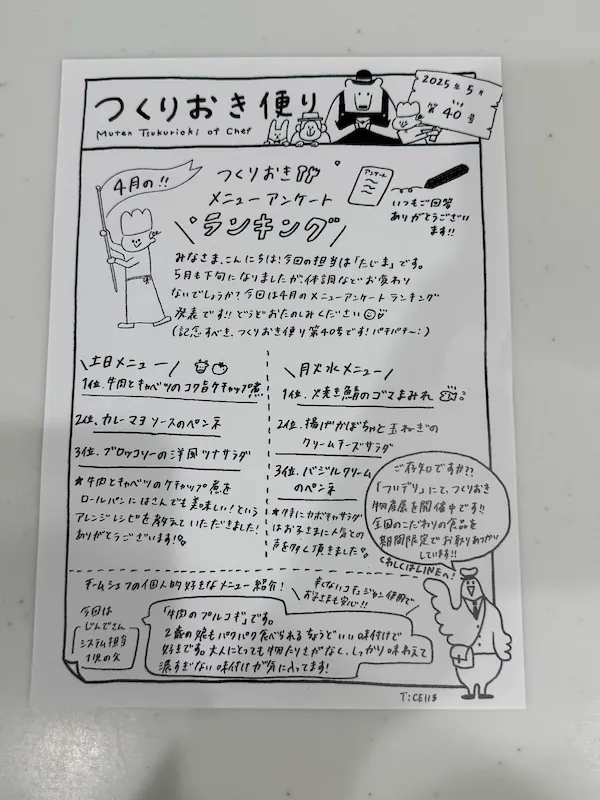 つくりおき便り
Muten Tsukurioki of Chef
2025年5月
第40号
4月の!!
つくりおき
メニューアンケート
ランキング
アンケート
いつもご回答
ありがとうござい
ます!!
みなさま、こんにちは!今回の担当は「たじま」です。
5月も下旬になりましたが、体調などお変わり
ないでしょうか?今回は4月のメニューアンケートランキング
発表です!!どうぞおたのしみください
(記念すべき、つくりおき便り第40号です!パチパチ~!)
土日メニュー
1位.牛肉とキャベツのコク旨ケチャップ煮
2位.カレーマヨソースのペンネ
3位.ブロッコリーの洋風ツナサラダ
★牛肉とキャベツのケチャップ煮を
ロールパンにはさんでも美味しい!という
アレンジレシピを教えていただきました!
ありがとうございます!
月火水メニュー
1位.焼き鯖のゴマまみれ
2位.揚げかぼちゃと玉ねぎの
クリームチーズサラダ
3位.バジルクリーム
のペンネ
★特にカボチャサラダ
はお子さまに人気との
声を多く頂きました。
ご存知ですか??
「ツレデリ」にて、つくりおき
物産展を開催中です!!
全国のこだわりの食品を
期間限定でお取りあつかい
しています!!
くわしくはLINEへ!
チームシェフの個人的好きなメニュー紹介!
辛くないコチュジャン使用で
お子さまも安心!!
今回は
じんでさん
システム担当
1児の父
「牛肉のプルコギ」です。
2歳の娘もパクパク食べられるちょうどいい味付けで
好きです。大人にとっても物たりなさがなく、しっかり味わえて
濃すぎない味付けが気に入ってます!